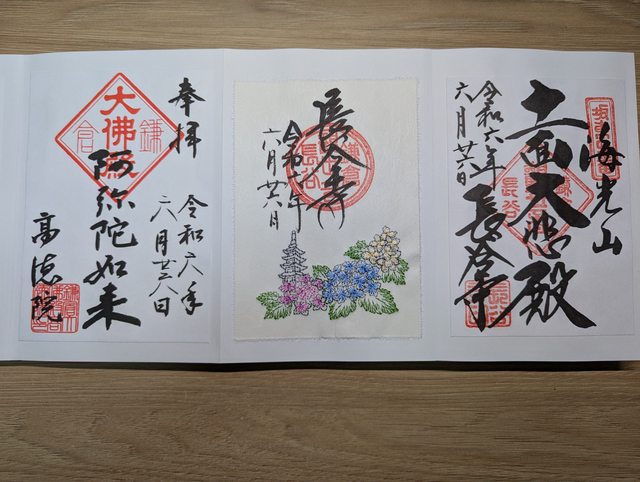 海光山
十一面大悲殿
長谷
長谷寺
令和六年
六月廿六日
長谷寺
鎌倉
長谷
令和六年
六月廿六日
奉拝
令和六年
六月廿六日
鎌倉
大佛殿
阿弥陀如来
高徳院